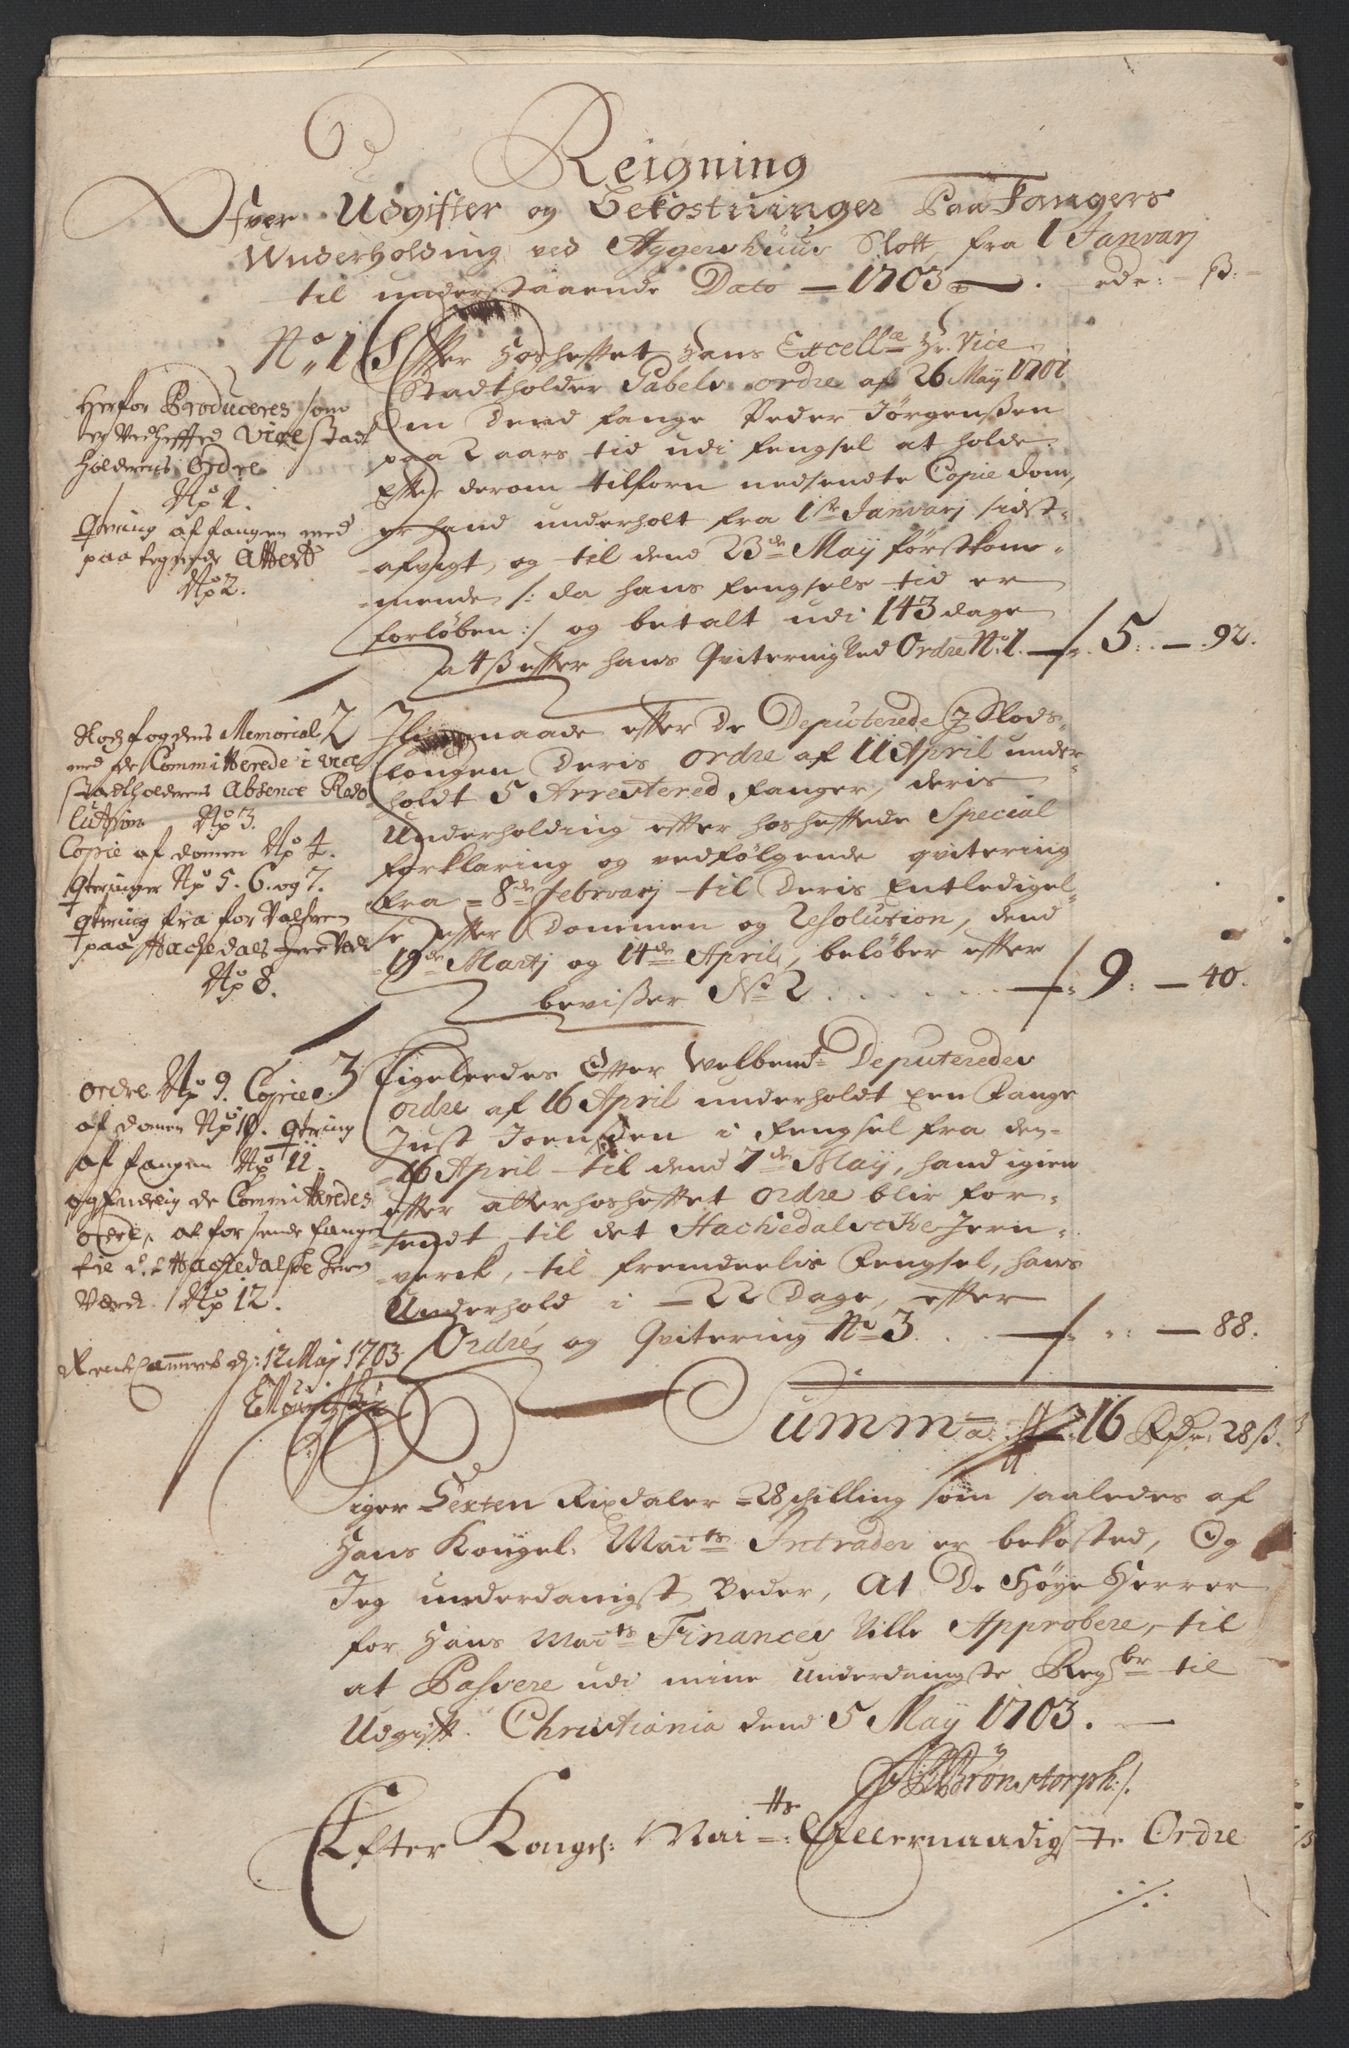 Reigning
Ofver Udgifter og Bekostninger Paa Fangers
Underholding ved Aggershuus Slott, fra 1 Januarj
til understaaende Dato — 1703 — . rdr: — ß: —
No. 1 Efter Hoshefftet Hans Excellce Hr. Vice
Stadtholder Gabels ordre af 26 May 1701
om dend fange Peder Jörgenßen
paa 2 aars tid udi fengsel at holde
Effter derom tilforn nedsendte Copie dom,
er hand underholt fra 1ste Januarj sidst-
afvigt, og til dend 23de May förstkom-
mende /: da hans fengsels tid er
forlöben :/ og betalt udi 143 dage
a 4 ß effter hans Qvitering Ved Ordre No. 1. — 5: — 92.
Herfor Produceres som
er Vedheffted Vice Stadt
holderens Ordre
No 1.
Qtering af fangen med
paa tegnede Attest
No 2.
2 Iligemaade effter De Deputerede i Slods-
Louvens Deris ordre af 11 April under-
holdt 5 Arrestered Fanger, deris
Underholding effter hoshefftede Special
forklaring og vedfölgende qvitering
fra 8de Februarj til Deris Entledigel-
se effter Dommen og Resolution, dend
19de Martj og 14de April, belöber effter
bevißer No 2 . . . . . — 9: — 40.
Slodsfogdens Memorial
med de Committerede i vice
stadtholderens Absence Reso
lution No 3.
Copie af domen No 4.
Qteringer No 5. 6. og 7.
Qtering fra forValteren
paa Hachedals Jern Verk
No 8.
3 Ligeleedes Effter Welbemte Deputeredes
ordre af 16 April underholdt Een Fange
Just Joenßen i Fengsel fra den-
16 April til dend 7de May, hand igien
effter atterhoshefftet ordre blir for-
sendt til det Hachedalske Jern-
verck, til fremdeelis Fengsel, hans
Underhold i — 22 Dage, effter
Ordre og Qvitering No 3. . . — „: — 88.
Ordre No 9. Copie
af domen No 10. Qtering
af fangen No 11.
og Endelig de Committeredes
ordre, at forsende fangen
til det Hachedalske Jern
Verck No 12.
Rente Cammeret d: 12 Maj 1703.
Summa 16 Rdr: 28 ß.
Siger Sexten Rixdaler 28 schilling som saaledes af
Hans Kongel: Maits Intrader er bekosted, Og
Jeg underdanigst Beder, At De Höye Herrer
for Hans Maits Finances Ville Approbere, til
at Passere udi mine underdanigste Regbr til
Udgifft. Christiania dend 5 May 1703. —
Brönstorph ./.
Efter Kongel: Maits: Allernaadigste Ordre
./.